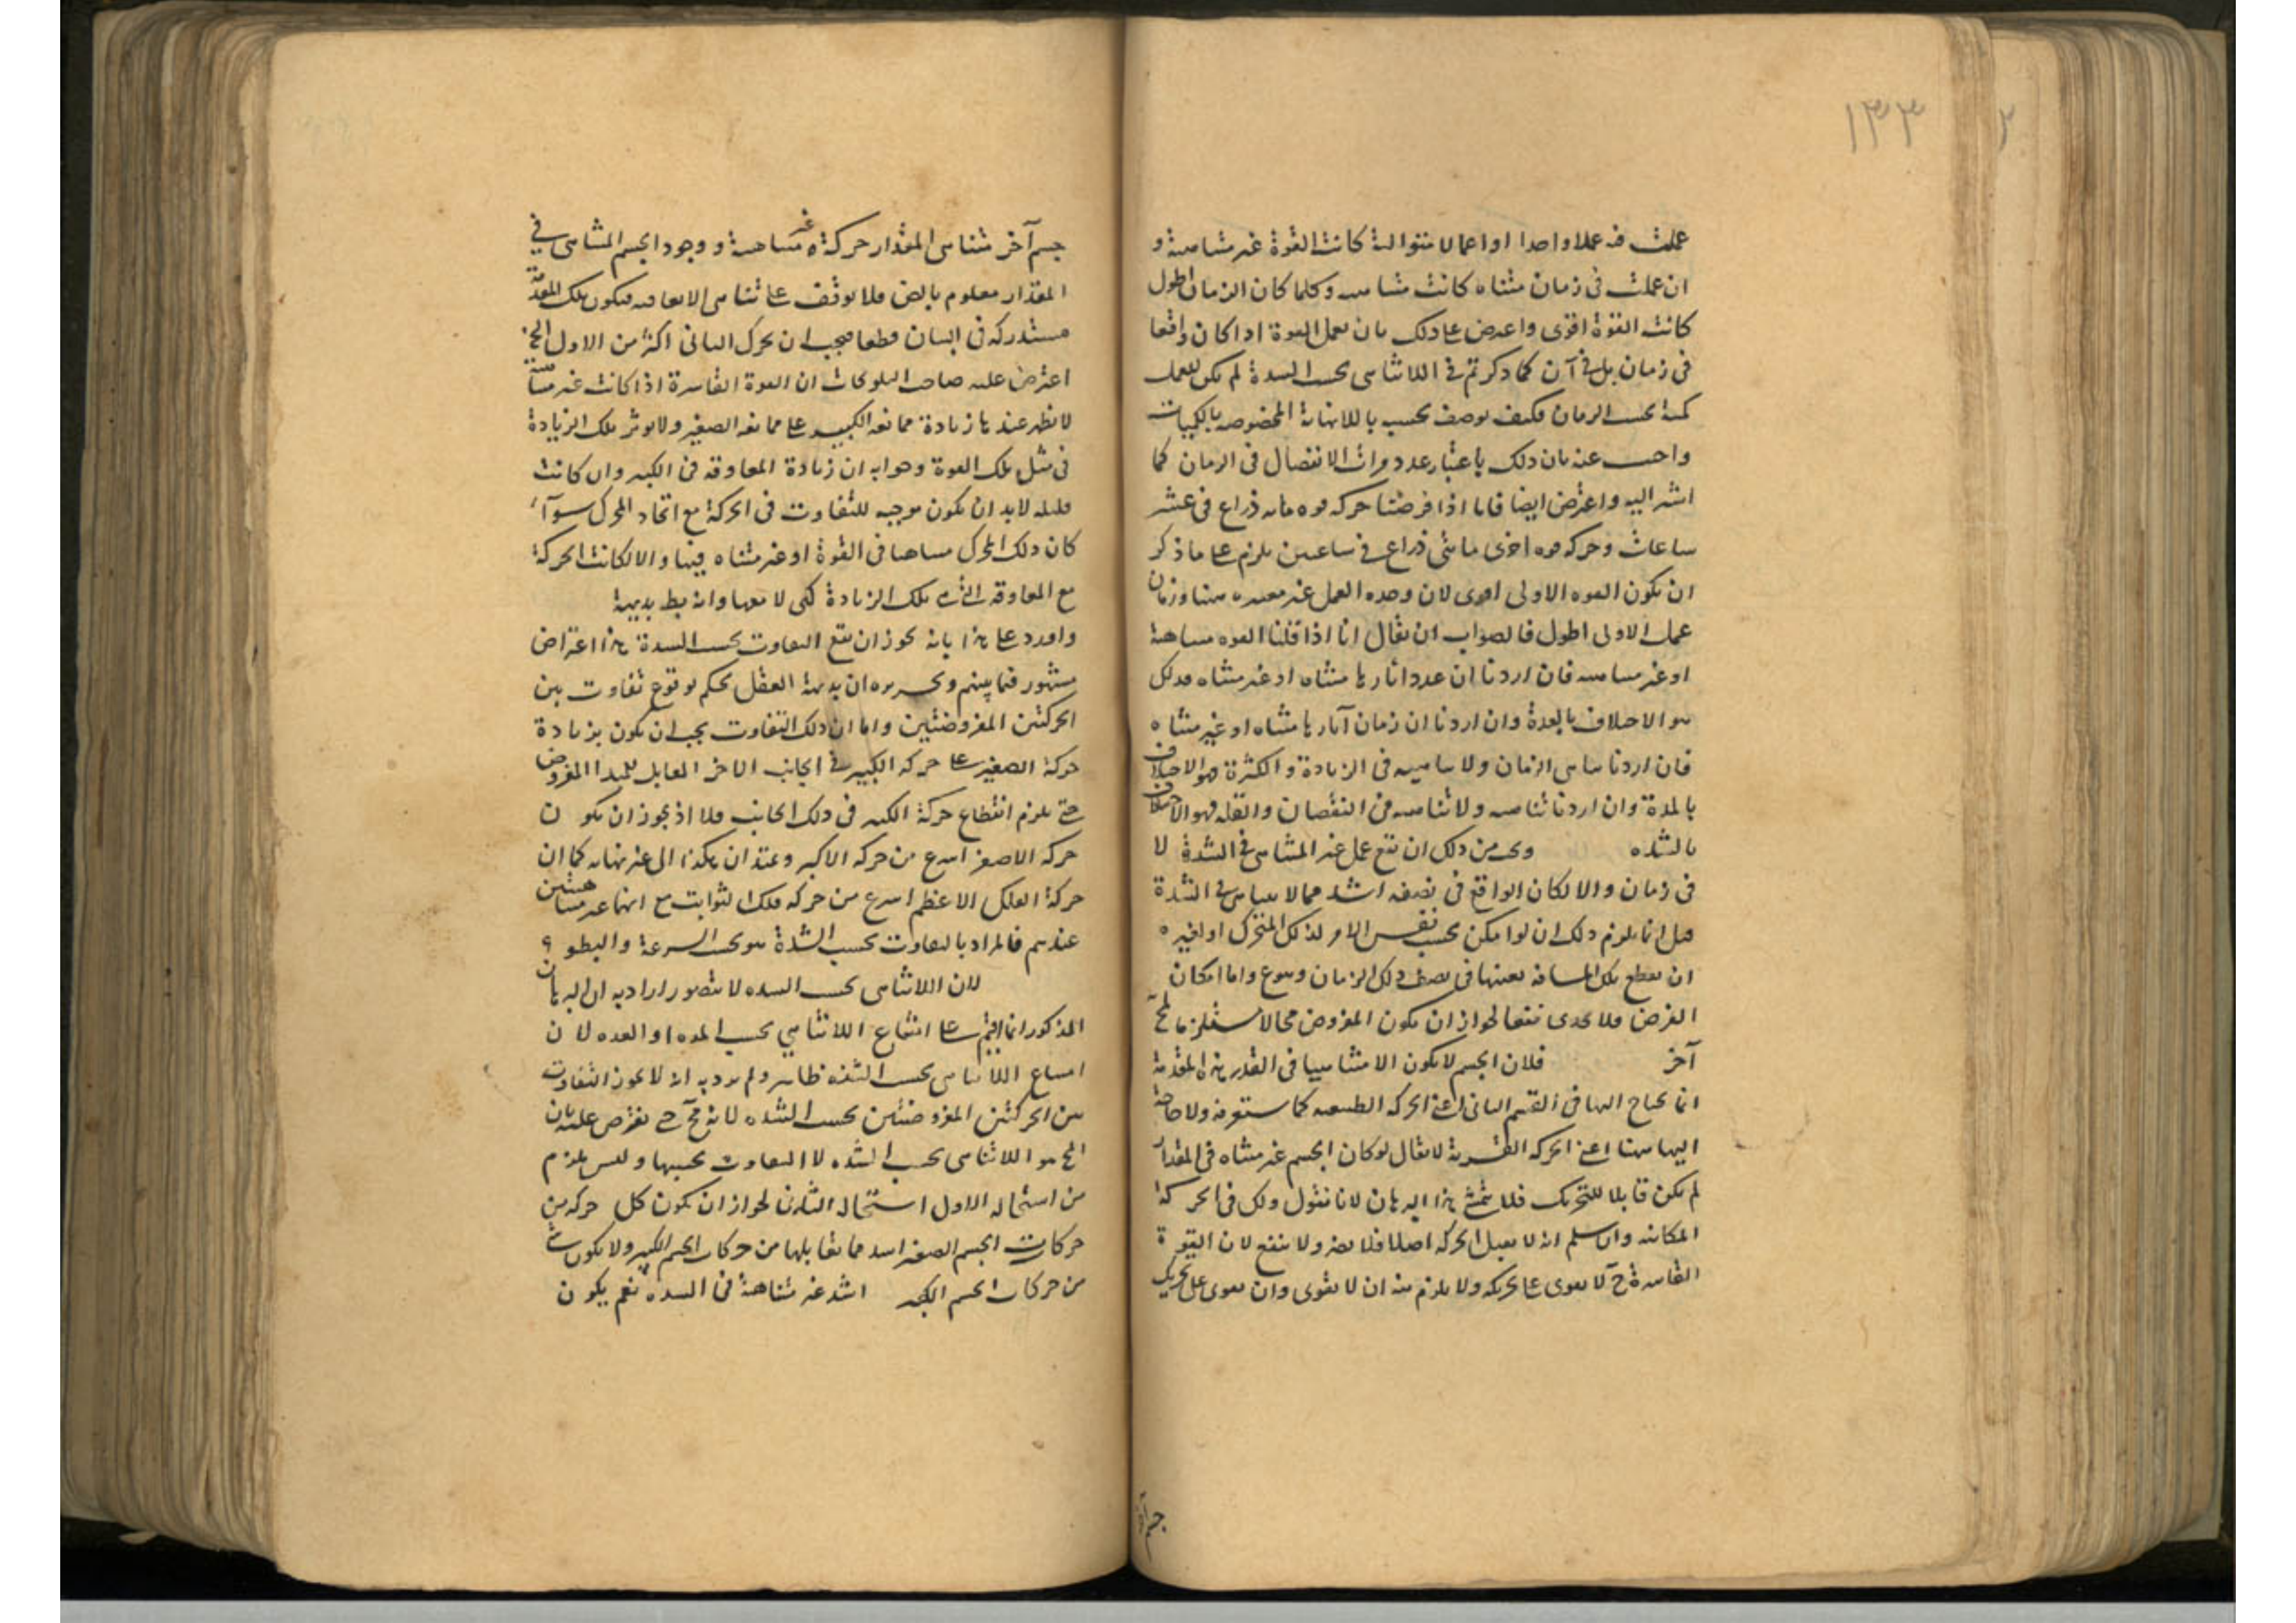 ١٣٣
عملت فيه عملا واحدا او اعمالا متوالية كانت القوة غير متناهية و
ان عملت فى زمان متناه كانت متناهيه وكلما كان الزمان اطول
كانت القوة اقوى واعترض على ذلك بان عمل القوة اذا كان واقعا
فى زمان بل فى آن كما ذكرتم فى اللاتناهى بحسب الشدة لم يكن للعمل
كمية بحسب الزمان فكيف يوصف بحسبه باللانهاية المخصوصه بالكميات
واجيب عنه بان ذلك باعتبار عدد مرات الانفصال فى الزمان كما
اشير اليه واعترض ايضا فانا اذا فرضنا حركة قوة مايه ذراع فى عشر
ساعات وحركه قوه اخرى مائتى ذراع فى ساعتين يلزم على ما ذكر
ان يكون القوه الاولى اقوى لان وحده العمل غير معتبره هنا وزمان
عمل الاولى اطول فالصواب ان يقال انا اذا قلنا القوه متناهية
او غير متناهيه فان اردنا ان عدد اثارها متناه او غير متناه فذلك
هو الاختلاف بالعدة وان اردنا ان زمان آثارها متناه او غير متناه
فان اردنا تناهى الزمان ولا تناهيه فى الزيادة والكثرة فهو الاختلاف
بالمدة وان اردنا تناهيه ولا تناهيه فى النقصان والقله فهو الاختلاف
بالشده وى من ذلك ان يقع عمل غير المتناهى فى الشدة لا
فى زمان والا لكان الواقع فى نصفه اشد مما لا يتناهى فى الشدة
قيل انما يلزم ذلك ان لو امكن بحسب نفس الامر لذلك المتحرك او لغيره
ان يقطع تلك المسافه بعينها فى نصف ذلك الزمان وهو ع واما امكان
الفرض فلا يجدى نفعا لجواز ان يكون المفروض محالا مستلزما لمح
آخر فلان الجسم لا يكون الا متناهيا فى القدر هذه المقدمة
انما يحتاج اليها فى القسم الثانى اعنى الحركه الطبيعيه كما ستعرفه ولا حاجة
اليها هنا اعنى الحركه القسرية لا يقال لو كان الجسم غير متناه فى المقدار
لم يكن قابلا للتحريك فلا يتمشى هذا البرهان لانا نقول ذلك فى الحركة
المكانيه وان سلم انه لا يقبل الحركه اصلا فلا يضر ولا ينفع لان القوة
القاسرة ح لا يقوى على تحريكه ولا يلزم منه ان لا يقوى وان يقوى على تحريك
جسم آخر
جسم آخر متناهى المقدار حركة غير متناهية و وجود الجسم المتناهى فى
المقدار معلوم بالض فلا يوقف على تناهى الابعاد فيكون تلك المقدمة
مستدركه فى البيان قطعا فيجب ان يحرك الثانى اكثر من الاول الخ
اعترض عليه صاحب التلويحات ان القوة القاسرة اذا كانت غير متناهية
لا يظهر عندها زيادة ممانعة الكبير على ممانعة الصغير ولا يوثر تلك الزيادة
فى مثل تلك القوة وجوابه ان زيادة المعاوقه فى الكبير وان كانت
قليله لابد ان يكون موجبه للتفاوت فى الحركة مع اتحاد المحرك سوآء
كان ذلك المحرك متناهيا فى القوة او غير متناه فيها والا لكانت الحركة
مع المعاوقه التى هى تلك الزيادة كهى لا معها وانه بط بديهة
واورد على هذا بانه يجوز ان يقع التفاوت بحسب الشدة هذا اعتراض
مشهور فيما بينهم وتحريره ان بديهة العقل يحكم بوقوع تفاوت بين
الحركتين المفروضتين واما ان ذلك التفاوت يجب ان يكون بزيادة
حركة الصغير على حركة الكبير فى الجانب الاخر المقابل للمبدا المفروض
حتى يلزم انقطاع حركة الكبير فى ذلك الجانب فلا اذ يجوز ان يكون
حركه الاصغر اسرع من حركه الاكبر وعتد ان هكذا الى غير نهايه كما ان
حركة الفلك الاعظم اسرع من حركه فلك الثوابت مع انهما غير متناهيتين
عندهم فالمراد بالتفاوت بحسب الشدة هو بحسب السرعة والبطو
لان اللاتناهى بحسب الشده لا يتصور اراد به ان البرهان
المذكور انما اقيم على امتناع اللاتناهى بحسب المده او العده لان
امتناع اللاتناهى بحسب الشده ظاهر ولم يرد به انه لا يجوز التفاوت
بين الحركتين المفروضتين بحسب الشده لانه مح حتى يعترض عليه بان
المح هو اللاتناهى بحسب الشده لا التفاوت بحسبها وليس يلزم
من استحاله الاول استحاله الثانى لجواز ان يكون كل حركه من
حركات الجسم الصغير اشد مما يقابلها من حركات الجسم الكبير ولا يكون شى
من حركات الجسم الكبير اشد غير متناهية فى الشده نعم يكون